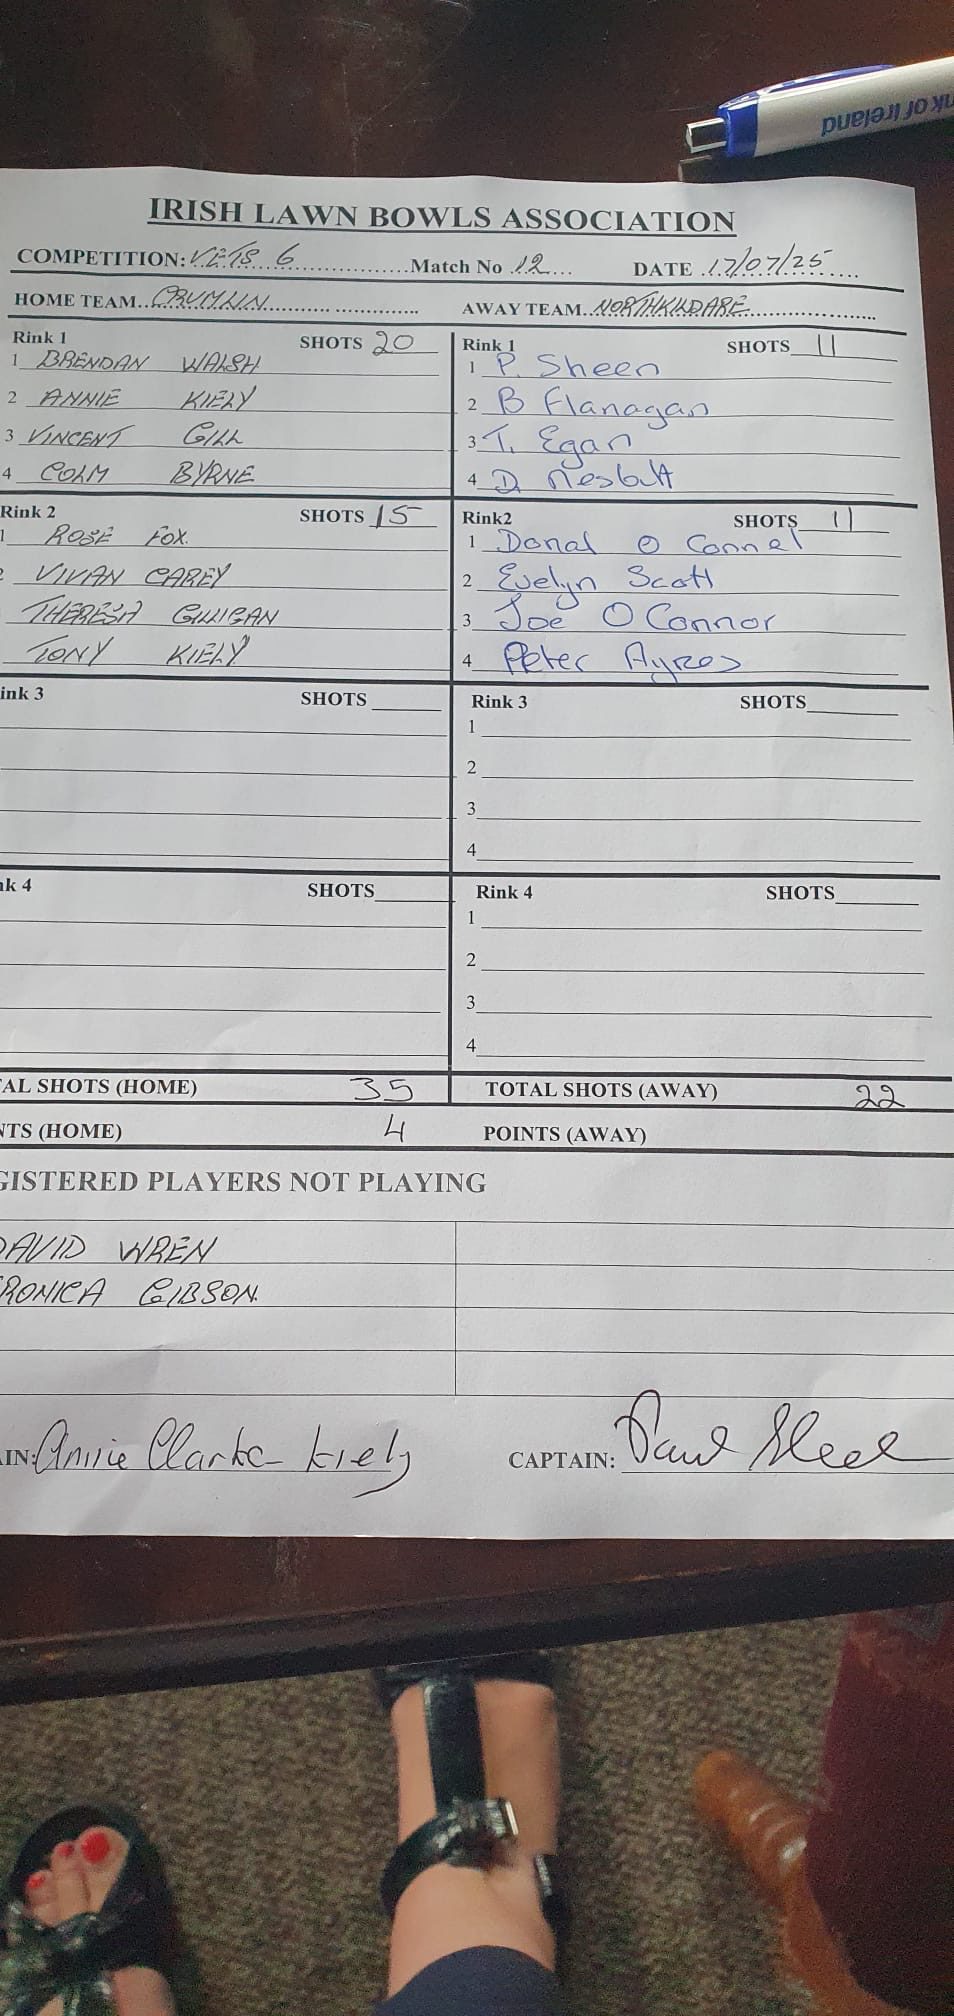 nk of Ireland
IRISH LAWN BOWLS ASSOCIATION
COMPETITION: VETS 6 Match No 12 DATE 17/07/25
HOME TEAM CRUMLIN AWAY TEAM NORTHKILDARE
Rink 1 SHOTS 20
1 BRENDAN WALSH
2 ANNIE KIELY
3 VINCENT GILL
4 COLM BYRNE
Rink 1 SHOTS 11
1 P. Sheen
2 B Flanagan
3 T. Egan
4 D Nesbitt
Rink 2 SHOTS 15
1 ROSE FOX
2 VIVIAN CAREY
THERESA GILLIGAN
TONY KIELY
Rink2 SHOTS 11
1 Donal O Connel
2 Evelyn Scott
3 Joe O Connor
4 Peter Ayres
ink 3 SHOTS
Rink 3 SHOTS
1
2
3
4
nk 4 SHOTS
Rink 4 SHOTS
1
2
3
4
AL SHOTS (HOME) 35 TOTAL SHOTS (AWAY) 22
NTS (HOME) 4 POINTS (AWAY)
GISTERED PLAYERS NOT PLAYING
DAVID WREN
RONICA GIBSON
IN: Annie Clarke Kiely CAPTAIN: Paul